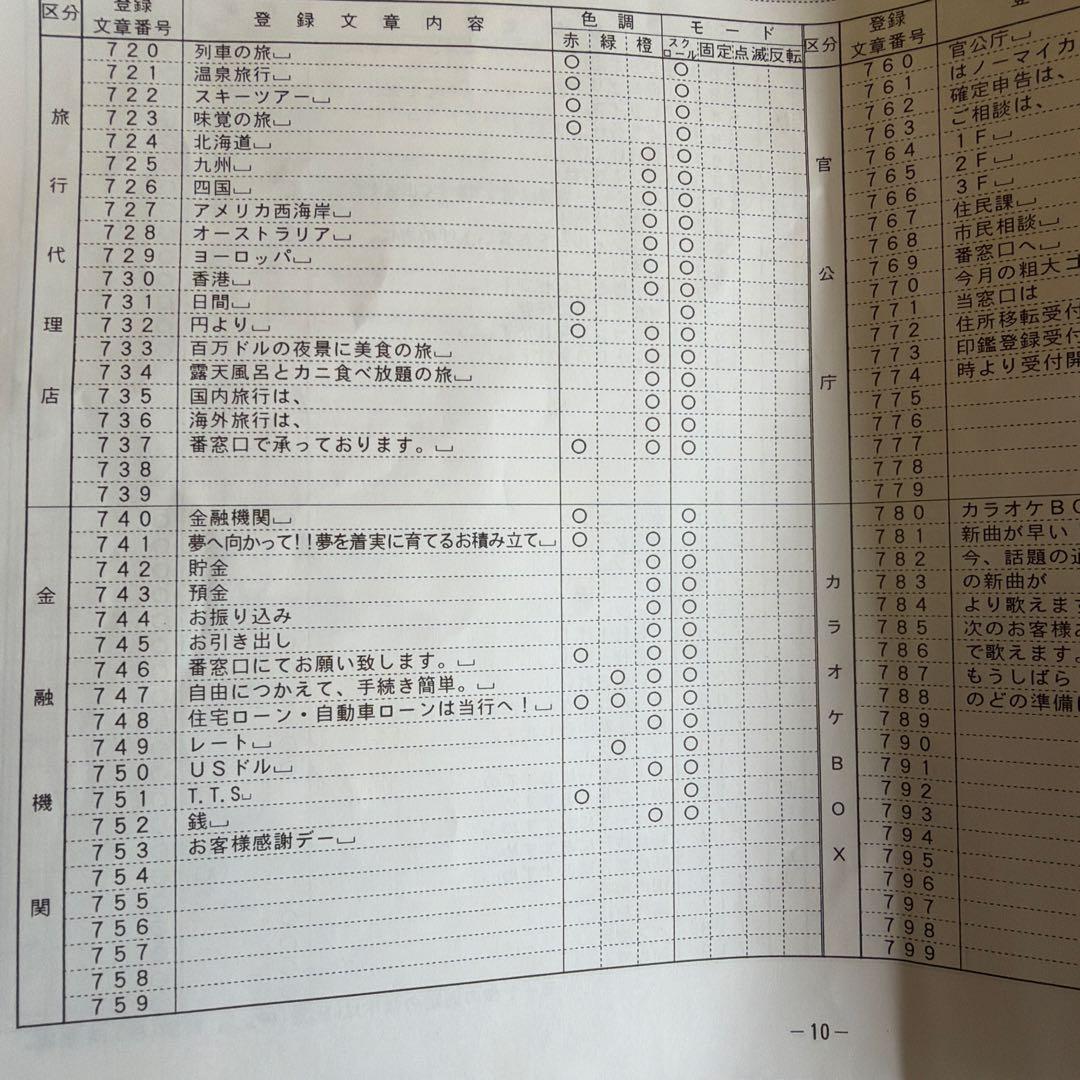 区分 登録文章番号 登録文章内容 色調 モード
赤 緑 橙 スクロール 固定 点滅 反転
旅行代理店
720 列車の旅␣ ○ ○
721 温泉旅行␣ ○ ○
722 スキーツアー␣ ○ ○
723 味覚の旅␣ ○ ○
724 北海道␣ ○ ○
725 九州␣ ○ ○
726 四国␣ ○ ○
727 アメリカ西海岸␣ ○ ○
728 オーストラリア␣ ○ ○
729 ヨーロッパ␣ ○ ○
730 香港␣ ○ ○
731 日間␣ ○ ○
732 円より␣ ○ ○ ○
733 百万ドルの夜景に美食の旅␣ ○ ○
734 露天風呂とカニ食べ放題の旅␣ ○ ○
735 国内旅行は、 ○ ○
736 海外旅行は、 ○ ○
737 番窓口で承っております。␣ ○ ○ ○
738
739
金融機関
740 金融機関␣ ○ ○
741 夢へ向かって!!夢を着実に育てるお積み立て␣ ○ ○ ○
742 貯金 ○ ○
743 預金 ○ ○
744 お振り込み ○ ○
745 お引き出し ○ ○
746 番窓口にてお願い致します。␣ ○ ○ ○
747 自由につかえて、手続き簡単。␣ ○ ○ ○
748 住宅ローン・自動車ローンは当行へ!␣ ○ ○ ○ ○
749 レート␣ ○ ○
750 USドル␣ ○ ○
751 T.T.S␣ ○ ○
752 銭␣ ○ ○
753 お客様感謝デー␣
754
755
756
757
758
759
区分 登録文章番号 登
官公庁
760 官公庁␣
761 はノーマイカ
762 確定申告は、
763 ご相談は、
764 1F␣
765 2F␣
766 3F␣
767 住民課␣
768 市民相談␣
769 番窓口へ␣
770 今月の粗大ゴ
771 当窓口は
772 住所移転受付
773 印鑑登録受付
774 時より受付開
775
776
777
778
779
カラオケBOX
780 カラオケBO
781 新曲が早い
782 今、話題の
783 の新曲が
784 より歌えます
785 次のお客様
786 で歌えます。
787 もうしばら
788 のどの準備
789
790
791
792
793
794
795
796
797
798
799
−10−